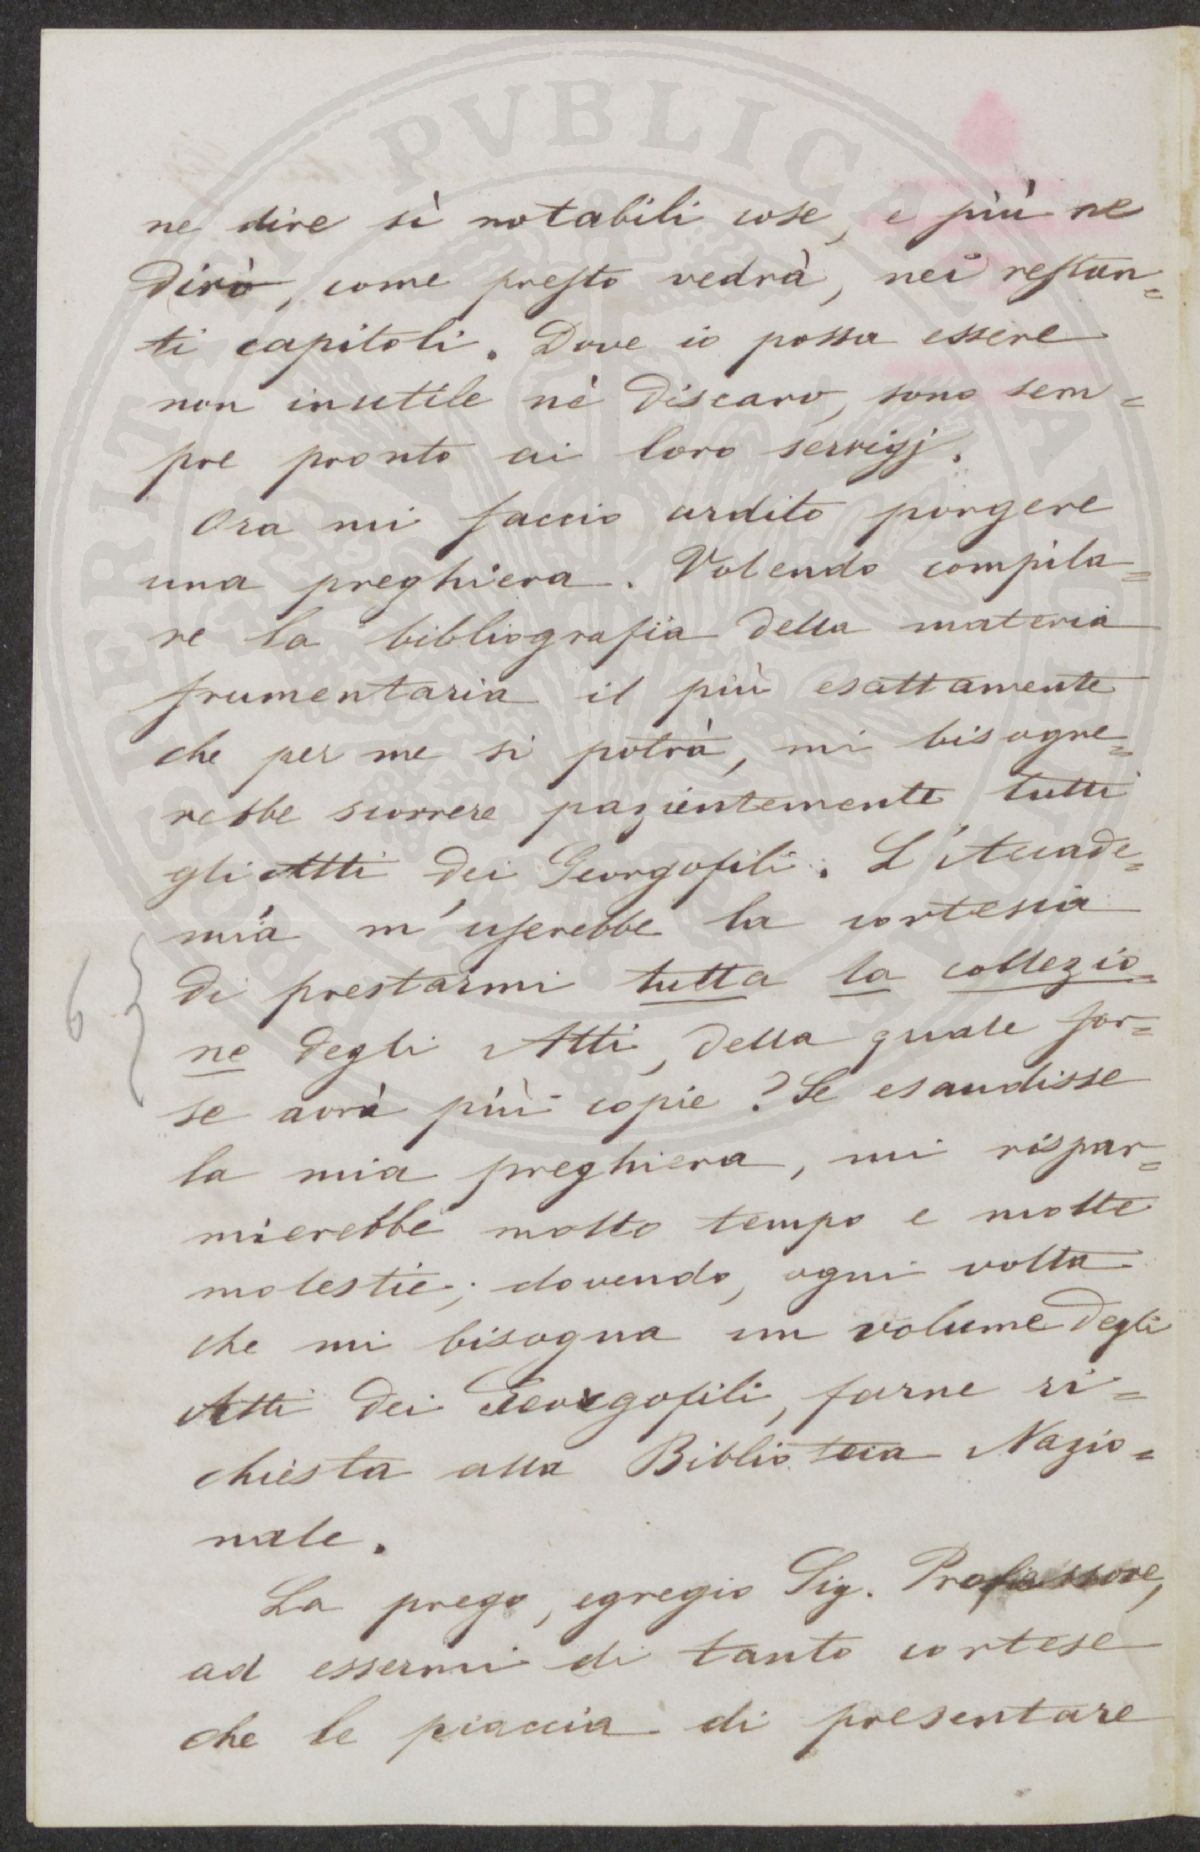 ne dire sì notabili cose, e più ne
dirò, come presto vedrà, nei restan=
ti capitoli. Dove io possa essere
non inutile nè discaro, sono sem=
pre pronto ai loro servigj.
Ora mi faccio ardito porgere
una preghiera. Volendo compila=
re la bibliografia della materia
frumentaria il più esattamente
che per me si potrà, mi bisogne=
rebbe scorrere pazientemente tutti
gli Atti dei Georgofili. L'Accade=
mia m'userebbe la cortesia
di prestarmi tutta la collezio=
ne degli Atti, della quale for=
se avrà più copie? Se esaudisse
la mia preghiera, mi rispar=
mierebbe molto tempo e molte
molestie; dovendo, ogni volta
che mi bisogna un volume degli
Atti dei Georgofili, farne ri=
chiesta alla Biblioteca Nazio=
nale.
La prego, egregio Sig. Professore,
ad essermi di tanto cortese
che le piaccia di presentare
6
PERITATE PVBLICAE AVGE